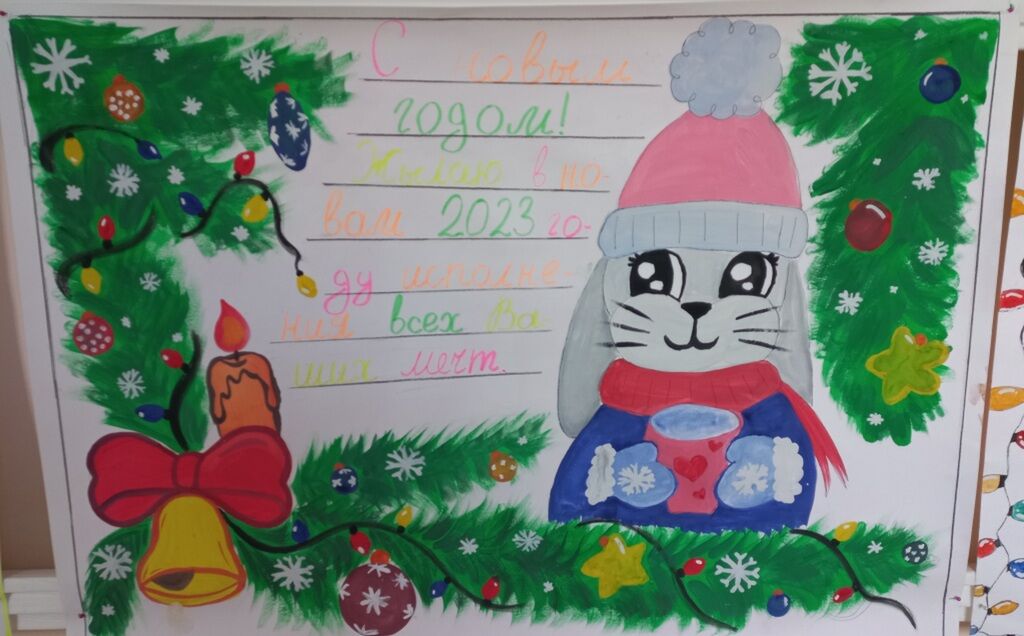 С новым
годом!
Жылаю в но-
вам 2023 го-
ду исполне-
ния всех Ва-
ших мечт.